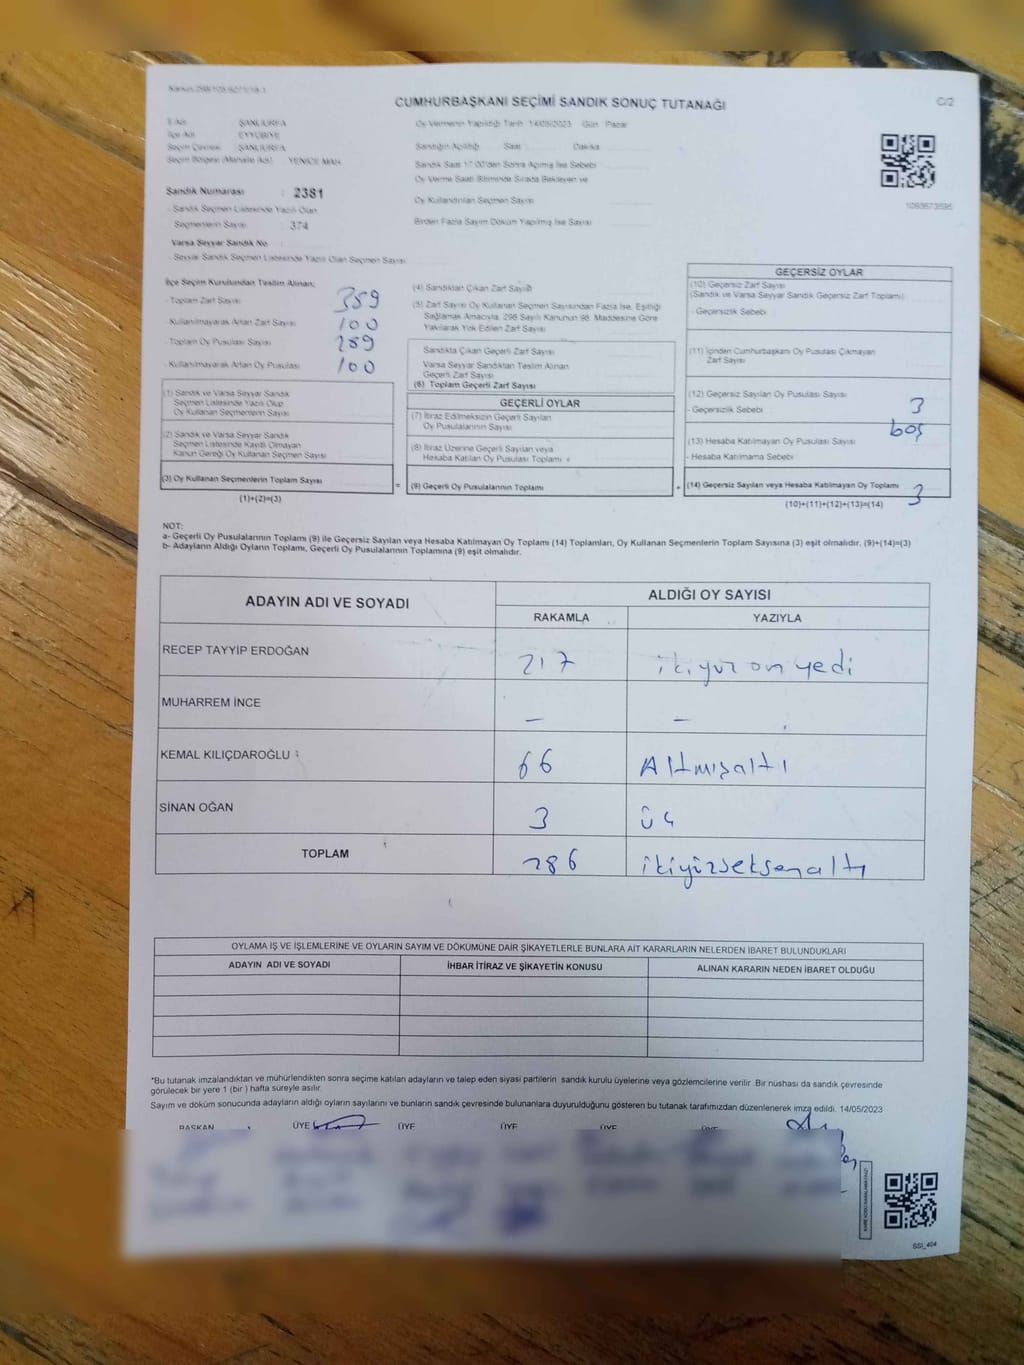 CUMHURBAŞKANI SEÇİMİ SANDIK SONUÇ TUTANAĞI
C/2
İl Adı : ŞANLIURFA
İlçe Adı : EYYÜBİYE
Seçim Çevresi : ŞANLIURFA
Seçim Bölgesi (Mahalle Adı) : YENİCE MAH.
Sandık Numarası : 2381
- Sandık Seçmen Listesinde Yazılı Olan
Seçmenlerin Sayısı : 374
Varsa Seyyar Sandık No
- Seyyar Sandık Seçmen Listesinde Yazılı Olan Seçmen Sayısı:
Oy Vermenin Yapıldığı Tarih : 14/05/2023 Gün : Pazar
Sandığın Açıldığı Saat Dakika
Sandık Saat 17:00'den Sonra Açılmış İse Sebebi
Oy Verme Saati Bitiminde Sırada Bekleyen ve
Oy Kullandırılan Seçmen Sayısı
Birden Fazla Sayım Döküm Yapılmış İse Sayısı
1093673595
İlçe Seçim Kurulundan Teslim Alınan;
- Toplam Zarf Sayısı 359
- Kullanılmayarak Artan Zarf Sayısı 100
- Toplam Oy Pusulası Sayısı
- Kullanılmayarak Artan Oy Pusulası 100
(1) Sandık ve Varsa Seyyar Sandık
Seçmen Listesinde Yazılı Olup
Oy Kullanan Seçmenlerin Sayısı
(2) Sandık ve Varsa Seyyar Sandık
Seçmen Listesinde Kayıtlı Olmayan
Kanun Gereği Oy Kullanan Seçmen Sayısı
(3) Oy Kullanan Seçmenlerin Toplam Sayısı
(1)+(2)=(3)
(4) Sandıktan Çıkan Zarf Sayısı
(5) Zarf Sayısı Oy Kullanan Seçmen Sayısından Fazla İse, Eşitliği
Sağlamak Amacıyla, 298 Sayılı Kanunun 98. Maddesine Göre
Yakılarak Yok Edilen Zarf Sayısı
Sandıkta Çıkan Geçerli Zarf Sayısı
Varsa Seyyar Sandıktan Teslim Alınan
Geçerli Zarf Sayısı
(6) Toplam Geçerli Zarf Sayısı
GEÇERLİ OYLAR
(7) İtiraz Edilmeksizin Geçerli Sayılan
Oy Pusulalarının Sayısı
(8) İtiraz Üzerine Geçerli Sayılan veya
Hesaba Katılan Oy Pusulası Toplamı
= (9) Geçerli Oy Pusulalarının Toplamı
GEÇERSİZ OYLAR
(10) Geçersiz Zarf Sayısı
(Sandık ve Varsa Seyyar Sandık Geçersiz Zarf Toplamı)
- Geçersizlik Sebebi
(11) İçinden Cumhurbaşkanı Oy Pusulası Çıkmayan
Zarf Sayısı
(12) Geçersiz Sayılan Oy Pusulası Sayısı 3
- Geçersizlik Sebebi boş
(13) Hesaba Katılmayan Oy Pusulası Sayısı
- Hesaba Katılmama Sebebi
+ (14) Geçersiz Sayılan veya Hesaba Katılmayan Oy Toplamı 3
(10)+(11)+(12)+(13)=(14)
NOT:
a- Geçerli Oy Pusulalarının Toplamı (9) ile Geçersiz Sayılan veya Hesaba Katılmayan Oy Toplamı (14) Toplamları, Oy Kullanan Seçmenlerin Toplam Sayısına (3) eşit olmalıdır. (9)+(14)=(3)
b- Adayların Aldığı Oyların Toplamı, Geçerli Oy Pusulalarının Toplamına (9) eşit olmalıdır.
ADAYIN ADI VE SOYADI ALDIĞI OY SAYISI
RAKAMLA YAZIYLA
RECEP TAYYİP ERDOĞAN 217 ikiyüz on yedi
MUHARREM İNCE - -
KEMAL KILIÇDAROĞLU 66 Altmışaltı
SİNAN OĞAN 3 üç
TOPLAM 286 ikiyüzseksenaltı
OYLAMA İŞ VE İŞLEMLERİNE VE OYLARIN SAYIM VE DÖKÜMÜNE DAİR ŞİKAYETLERLE BUNLARA AİT KARARLARIN NELERDEN İBARET BULUNDUKLARI
ADAYIN ADI VE SOYADI İHBAR İTİRAZ VE ŞİKAYETİN KONUSU ALINAN KARARIN NEDEN İBARET OLDUĞU
*Bu tutanak imzalandıktan ve mühürlendikten sonra seçime katılan adayların ve talep eden siyasi partilerin sandık kurulu üyelerine veya gözlemcilerine verilir. Bir nüshası da sandık çevresinde
görülecek bir yere 1 (bir ) hafta süreyle asılır.
Sayım ve döküm sonucunda adayların aldığı oyların sayılarını ve bunların sandık çevresinde bulunanlara duyurulduğunu gösteren bu tutanak tarafımızdan düzenlenerek imza edildi. 14/05/2023
BAŞKAN ÜYE ÜYE ÜYE ÜYE ÜYE
SSİ_404